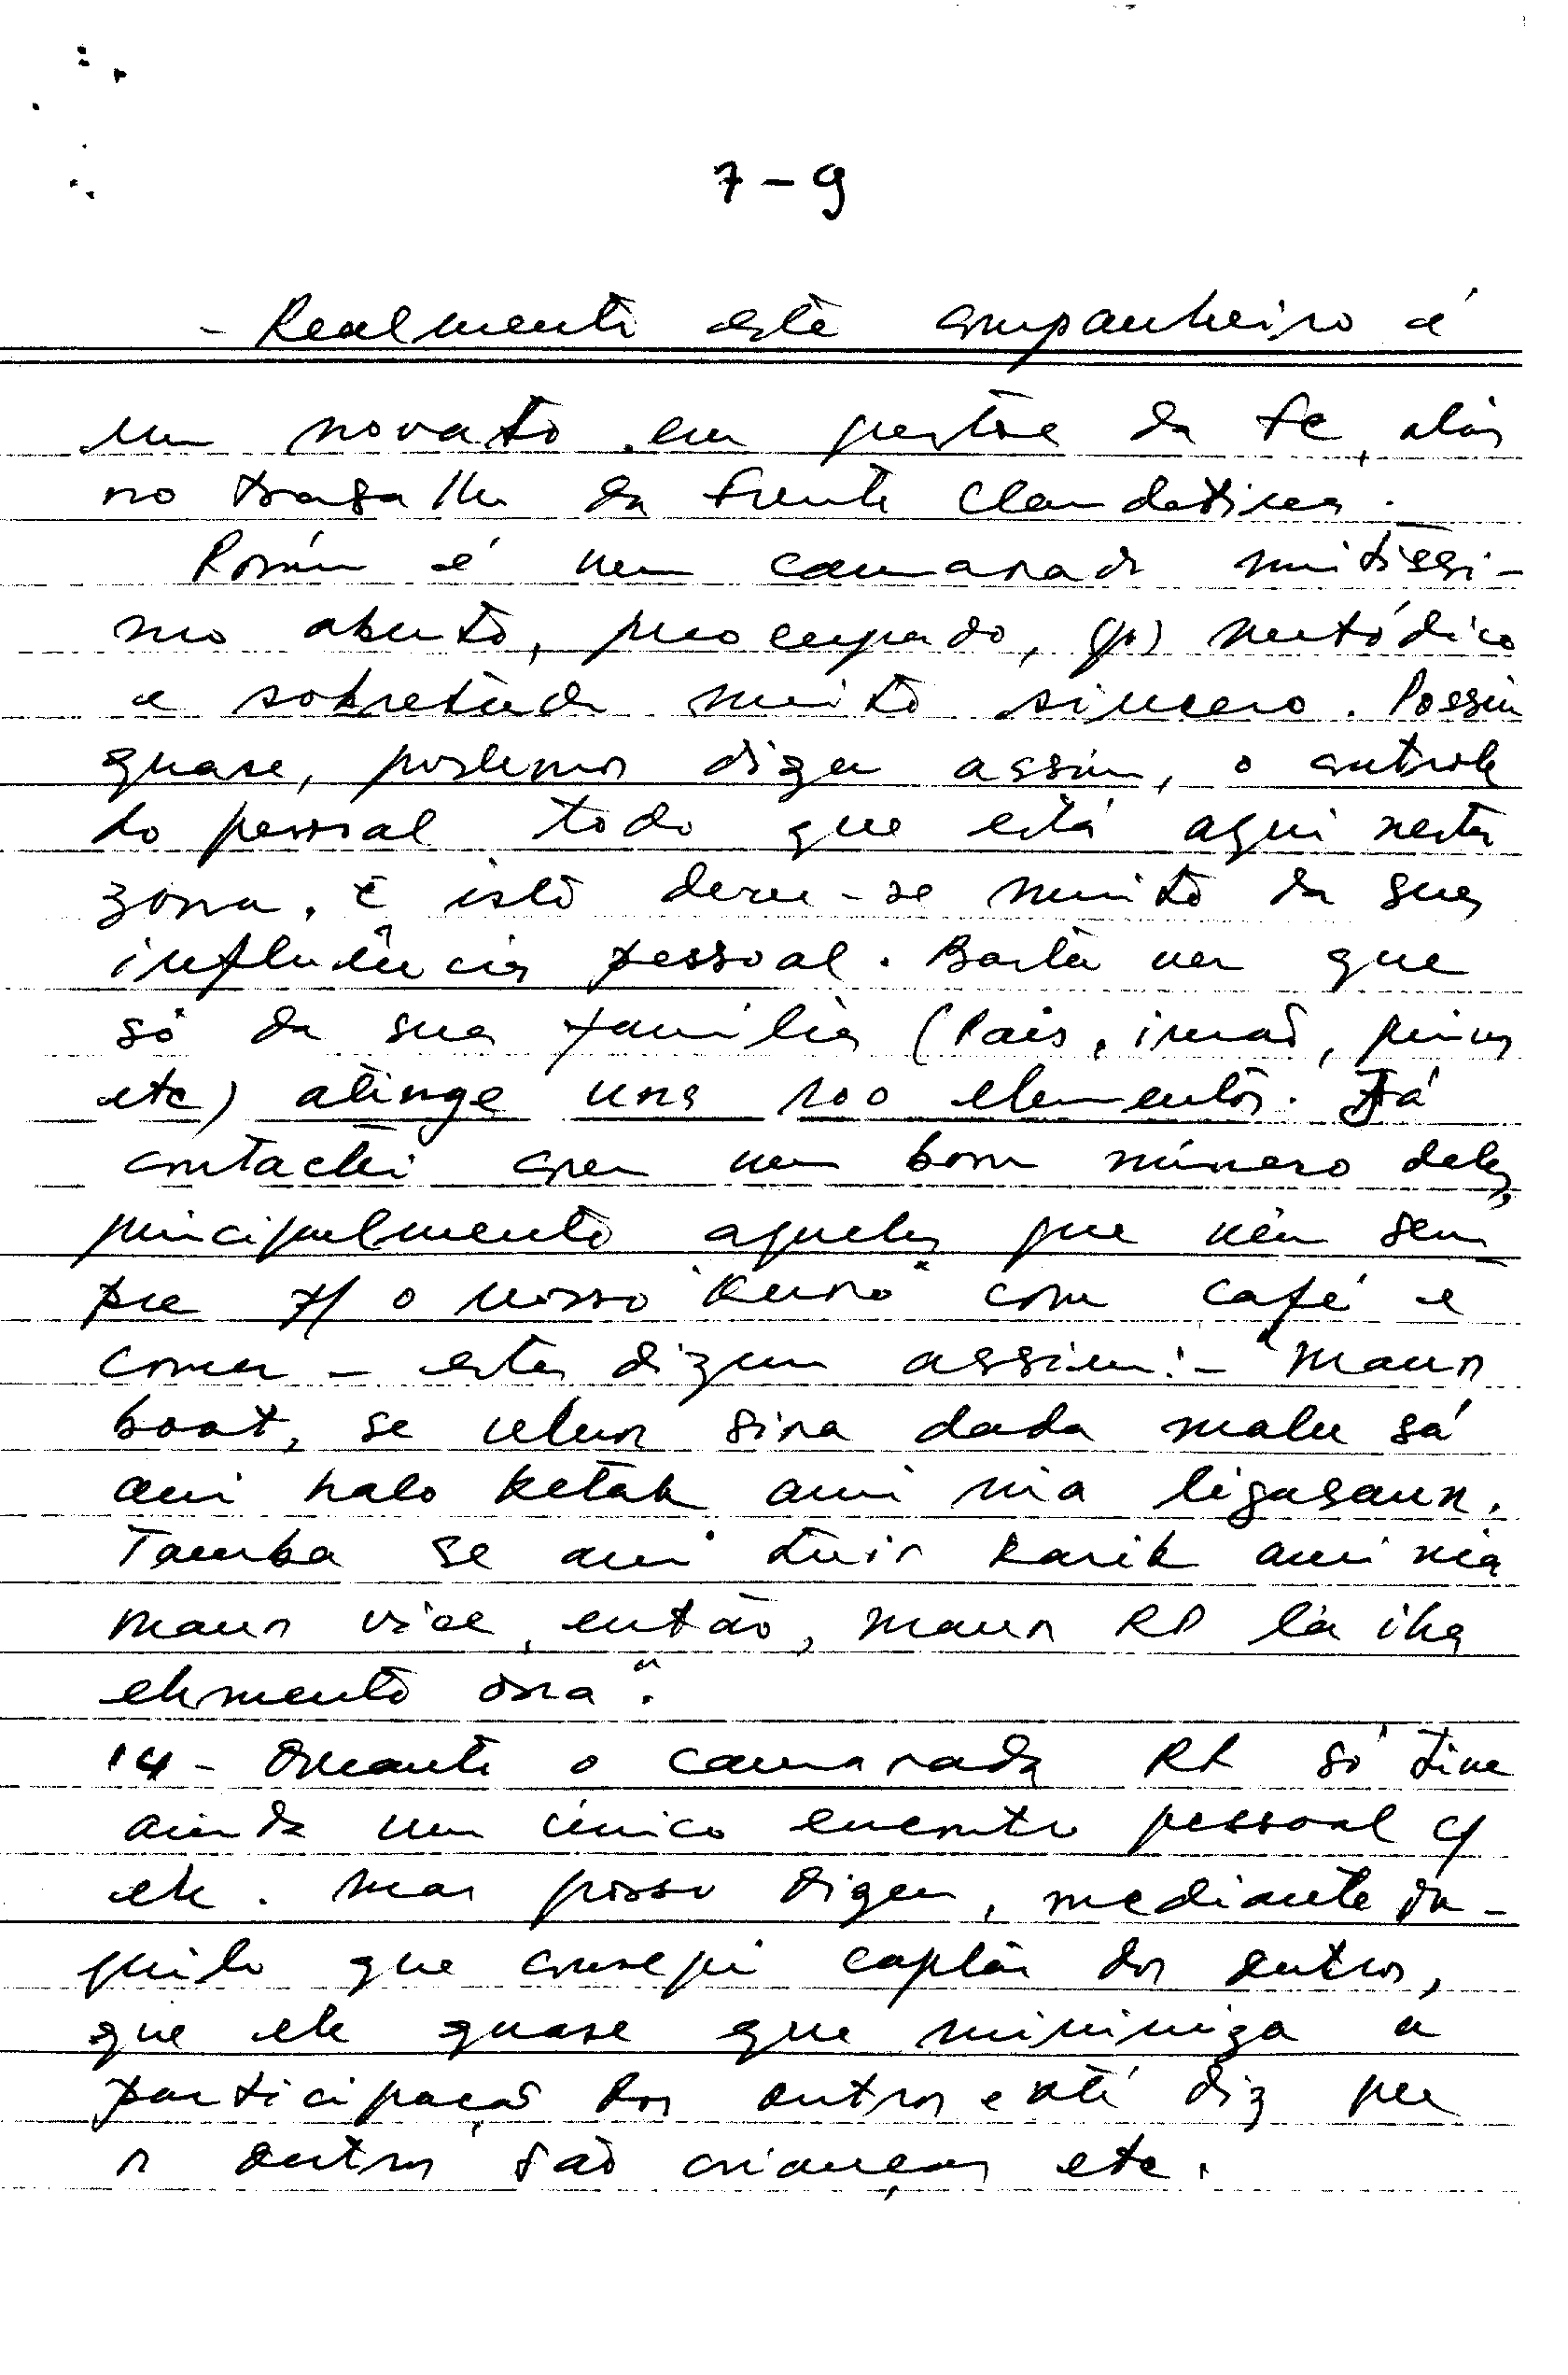 7-9
- Realmente este companheiro é
um novato em questões da FC, aliás
no trabalho da frente clandestina.
Román é um camarada muitíssi-
mo aberto, preocupado, metódico
e sobretudo muito sincero. Possui
quase, podemos dizer assim, o controle
do pessoal todo que está aqui nesta
zona. E isto deve-se muito da sua
influência pessoal. Basta ver que
só da sua família (Pais, irmãos, primos
etc) atinge uns 100 elementos. Já
contactei com um bom número deles,
principalmente aqueles que vêm sem-
pre p/ o nosso "kuro" com café e
comer - estes dizem assim: - "Maun
boot, se ulun sira dada malu sá
ami halo ketak ami nia ligasaun.
Tamba se ami tuir karik ami nia
maun vice, então, maun RR la iha
elemento ona".
14 - Quanto o camarada RR só tive
ainda um único encontro pessoal c/
ele. Mas posso dizer, mediante da-
quilo que consegui captar dos outros,
que ele quase que minimiza a
participação dos outros e até diz que
os outros são crianças etc.